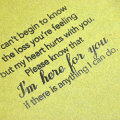 can't begin to know
the loss you're feeling
but my heart hurts with you.
Please know that
I'm here for you
if there is anything I can do.